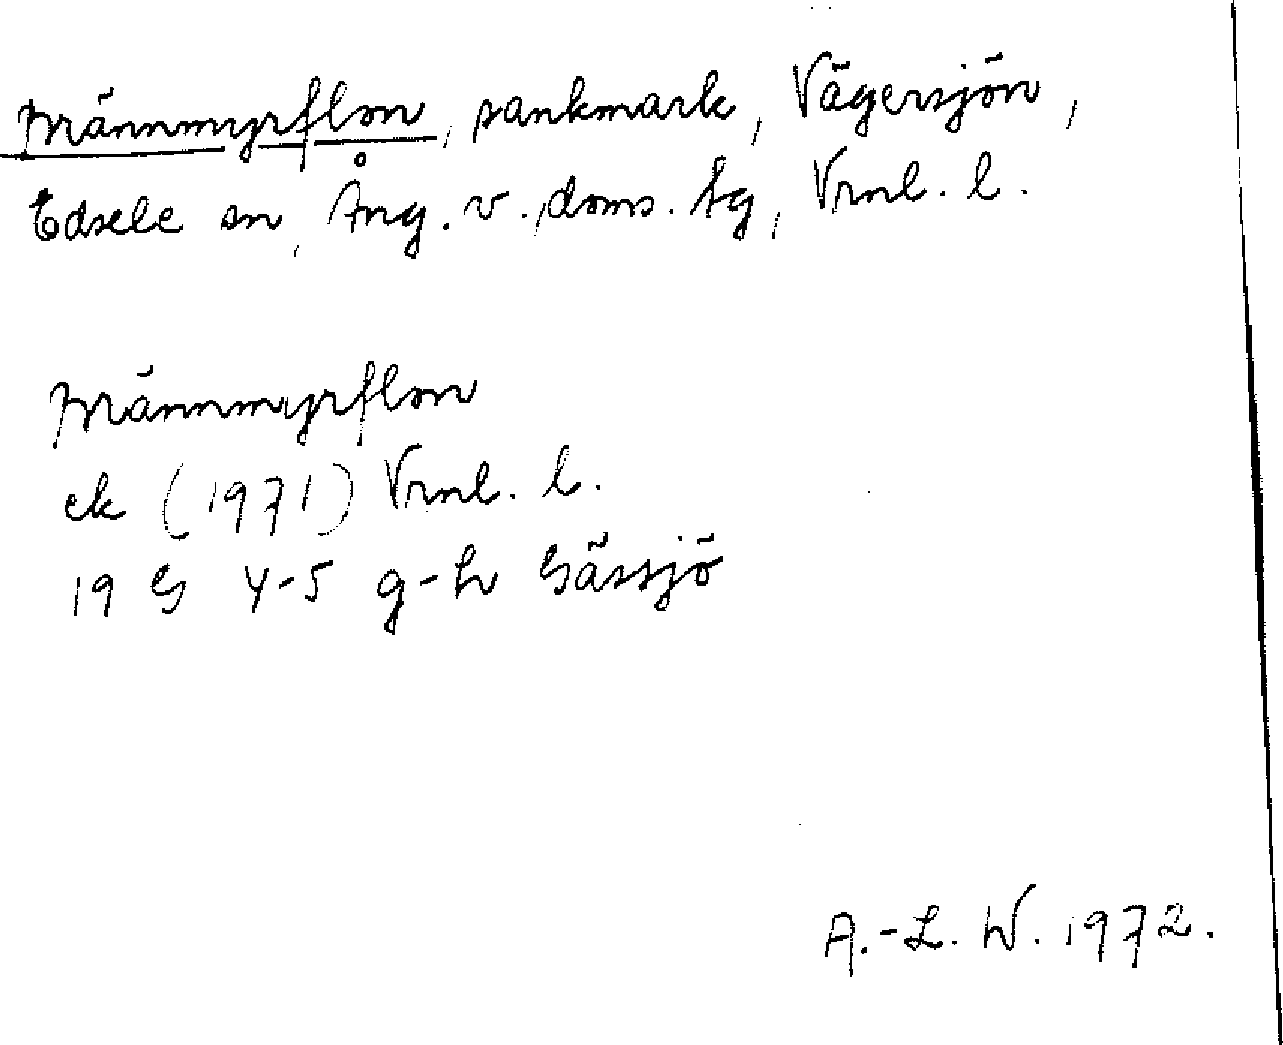 Brännmyrflon, sankmark, Vägersjön,
Edsele sn, Ång. v. doms. tg, Vrnl. l.
Brännmyrflon
ek (1971) Vrnl. l.
19 G 4-5 g-h Gässjö
A.-L. W. 1972.